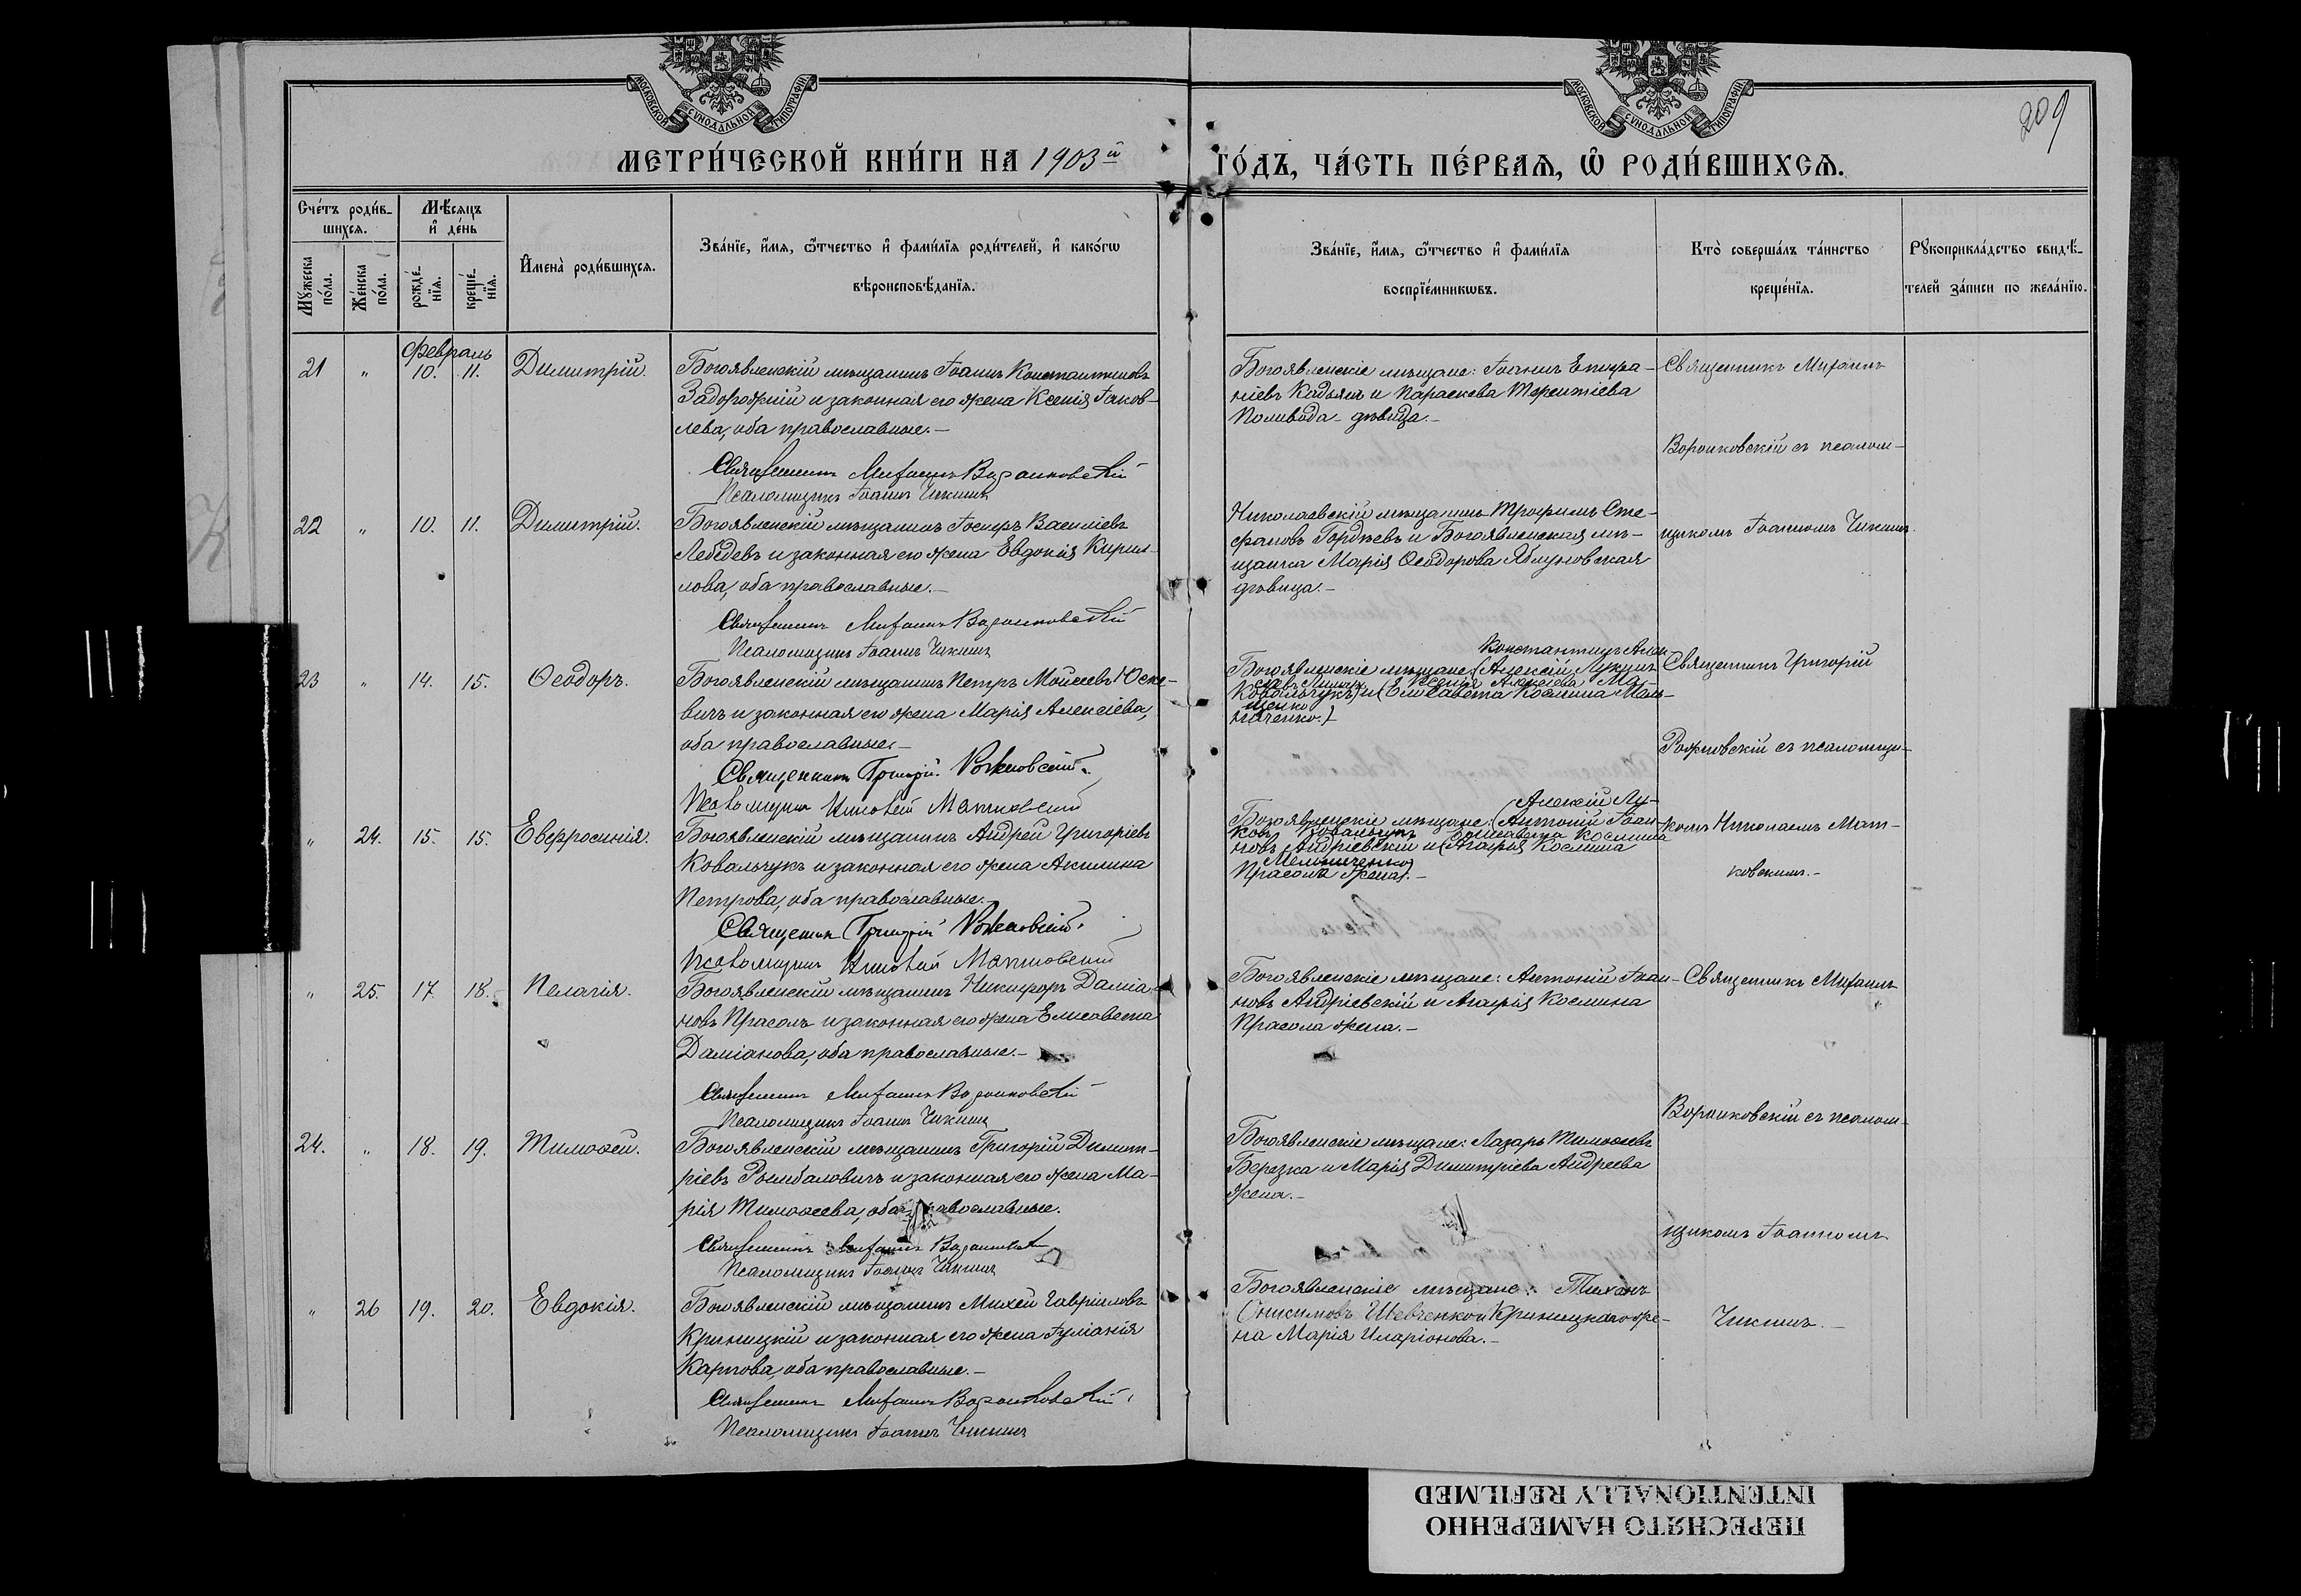 МОСКОВСКОЙ СУНОДАЛЬНОЙ ТИПОГРАФІИ.
МОСКОВСКОЙ СУНОДАЛЬНОЙ ТИПОГРАФІИ.
209
МЕТРИ́ЧЕСКОЙ КНИ́ГИ НА 1903й
ГО́ДЪ, ЧА́СТЬ ПЕ́РВАѦ, Ѡ҆ РОДИ́ВШИХСѦ.
Сче́тъ роди́в-
шихсѧ.
Мꙋ́жеска
по́ла.
Же́нска
по́ла.
Мѣ́сѧцъ
и҆ де́нь
рожде́-
нїѧ.
креще́-
нїѧ.
И҆мена̀ роди́вшихсѧ.
Зва́нїе, и҆́мѧ, ѻ҆́тчество и҆ фами́лїѧ роди́телей, и҆ како́гѡ
вѣроисповѣ́данїѧ.
Зва́нїе, и҆́мѧ, ѻ҆́тчество и҆ фами́лїѧ
воспрїе́мникѡвъ.
Кто̀ соверша́лъ та́инство
креще́нїѧ.
Рꙋкоприкла́дство свидѣ́-
телей за́писи по жела́нїю.
Февраль
21 " 10. 11. Димитрій.
Богоявленскій мѣщанинъ Іоаннъ Константиновъ
Задорожній и законная его жена Ксенія Іаков-
лева, оба православные.-
Священникъ Митрофанъ Воронковскій
Псаломщикъ Іоаннъ Чикинъ
Богоявленскіе мѣщане: Іоаннъ Епифа-
ніевъ Кадьянъ и Параскева Терентіева
Поливода - дѣвица.-
Священникъ
Воронковскій съ псалом-
22 " 10. 11. Димитрій.
Богоявленскій мѣщанинъ Іосифъ Василіевъ
Лебедевъ и законная его жена Евдокія Кирил-
лова, оба православные.-
Священникъ Воронковскій
Псаломщикъ Іоаннъ Чикинъ
Николаевскій мѣщанинъ Трофимъ Сте-
фановъ Гордѣевъ и Богоявленская мѣ-
щанка Марія Ѳеодорова Яблуновская
дѣвица.-
щикомъ Іоанномъ Чикинъ.
23 " 14. 15. Ѳеодоръ.
Богоявленскій мѣщанинъ Петръ Мойсеевъ Юске-
вичъ и законная его жена Марія Алексіева,
оба православные.-
Священникъ Григорій Рожновскій.
Псаломщикъ Николай Матковскій
Константинъ
Богоявленскіе мѣщане: (Алексій Лукинъ
Ксенія Алексіева Ма-
Ковальчукъ) и (Елисавета Космина Мель-
щенко
ниченко.)
Священникъ Григорій
Рожновскій съ псаломщи-
" 24. 15. 15. Евфросинія.
Богоявленскій мѣщанинъ Андрей Григоріевъ
Ковальчукъ и законная его жена Акилина
Петрова, оба православные.-
Священникъ Григорій Рожновскій.
Псаломщикъ Николай Матковскій
Алексій Лу-
Богоявленскіе мѣщане: (Антоній Іоан-
кинъ Ковальчукъ Елисавета Космина
новъ Андріевскій и (Агафія Космина
Мельниченко
Прасола жена).-
комъ Николаемъ Мат-
ковскимъ.-
" 25. 17. 18. Пелагія.
Богоявленскій мѣщанинъ Никифоръ Даміа-
новъ Прасолъ и законная его жена Елисавета
Даміанова, оба православные.-
Священникъ Воронковскій
Псаломщикъ Іоаннъ Чикинъ
Богоявленскіе мѣщане: Антоній Іоан-
новъ Андріевскій и Агафія Космина
Прасола жена.-
Священникъ
Воронковскій съ псалом-
24. " 18. 19. Тимоѳей.
Богоявленскій мѣщанинъ Григорій Димит-
ріевъ Рымбаловичъ и законная его жена Ма-
рія Тимоѳеева, оба православные.
Священникъ Воронковскій
Псаломщикъ Іоаннъ Чикинъ
Богоявленскіе мѣщане: Лазарь Тимоѳеевъ
Березка и Марія Димитріева Андреева
жена.-
щикомъ Іоанномъ
" 26 19. 20. Евдокія.
Богоявленскій мѣщанинъ Михей Гавріиловъ
Криницкій и законная его жена Іуліанія
Карпова, оба православные.-
Священникъ Воронковскій
Псаломщикъ Іоаннъ Чикинъ
Богоявленскіе мѣщане: Тихонъ
Онисимовъ Шевченко и Криницкаго же-
на Марія Иларіонова.-
Чикинъ.-
ПЕРЕСНЯТО НАМЕРЕННО
INTENTIONALLY REFILMED